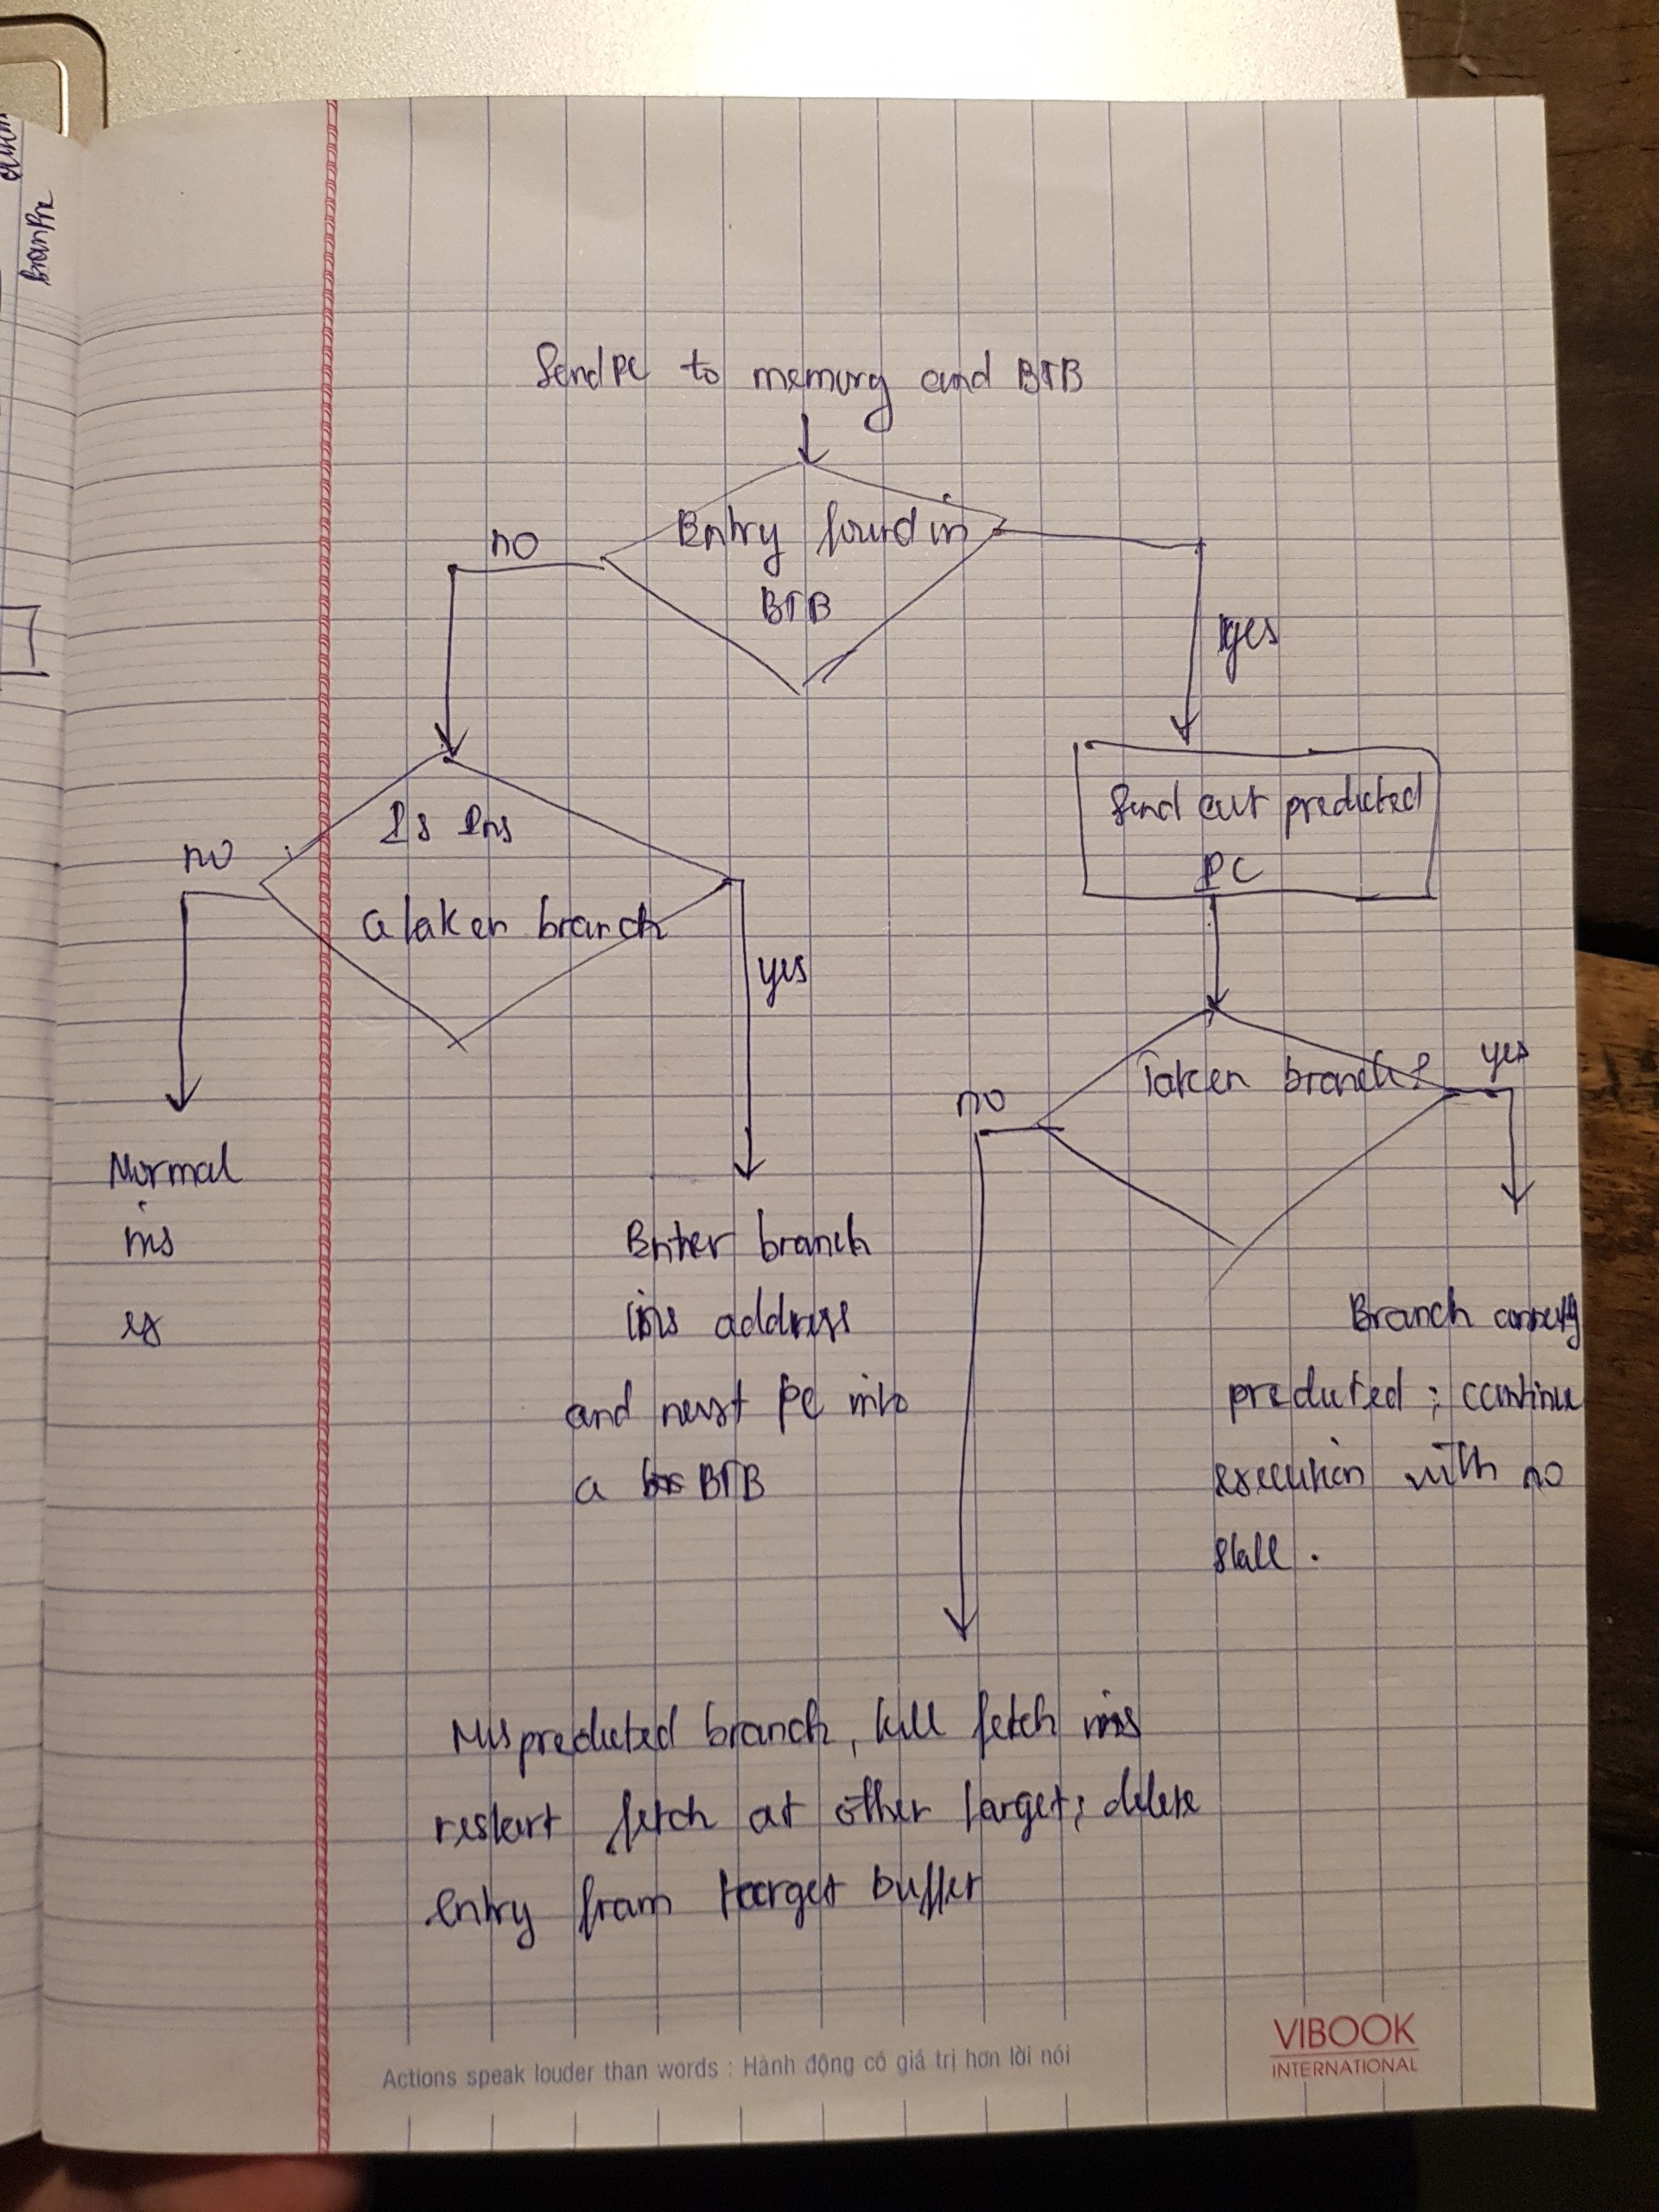 BranPre
Send PC to memory and BTB
Entry found in
BTB
no
yes
Is Ins
a taken branch
no
yes
Send out predicted
PC
Taken branch?
no
yes
Normal
ins
ex
Enter branch
ins address
and next PC into
a BTB
Branch correctly
predicted ; continue
execution with no
stall .
Mispredicted branch, kill fetch ins
restart fetch at other target; delete
entry from target buffer
Actions speak louder than words : Hành động có giá trị hơn lời nói
VIBOOK
INTERNATIONAL